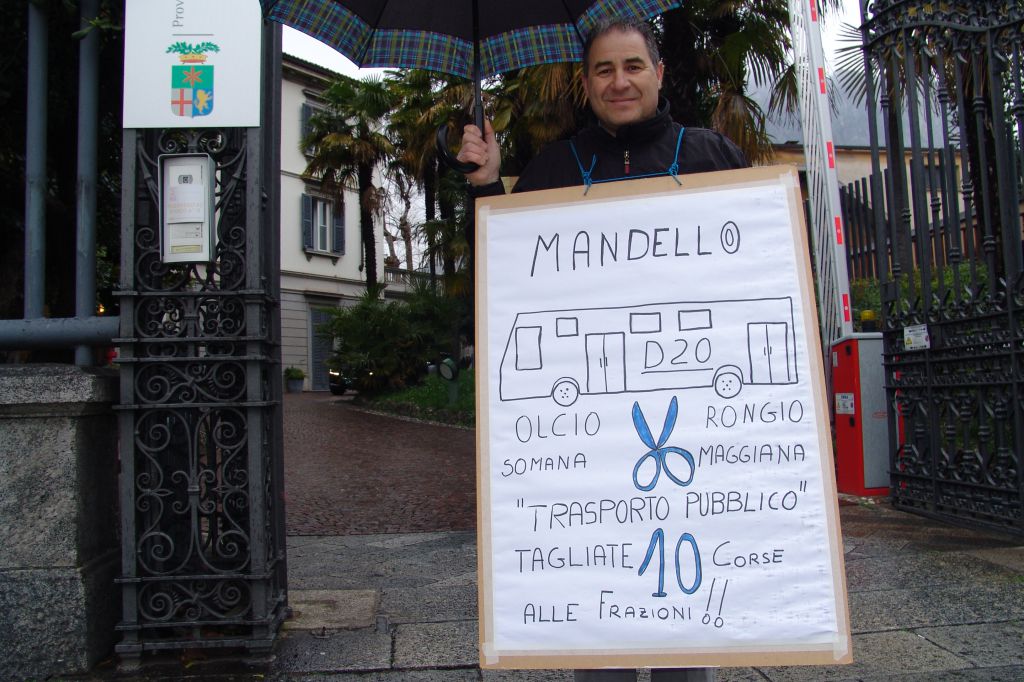 Prov
MANDELLO
D20
OLCIO RONGIO
SOMANA MAGGIANA
"TRASPORTO PUBBLICO"
TAGLIATE 10 CORSE
ALLE FRAZIONI!!